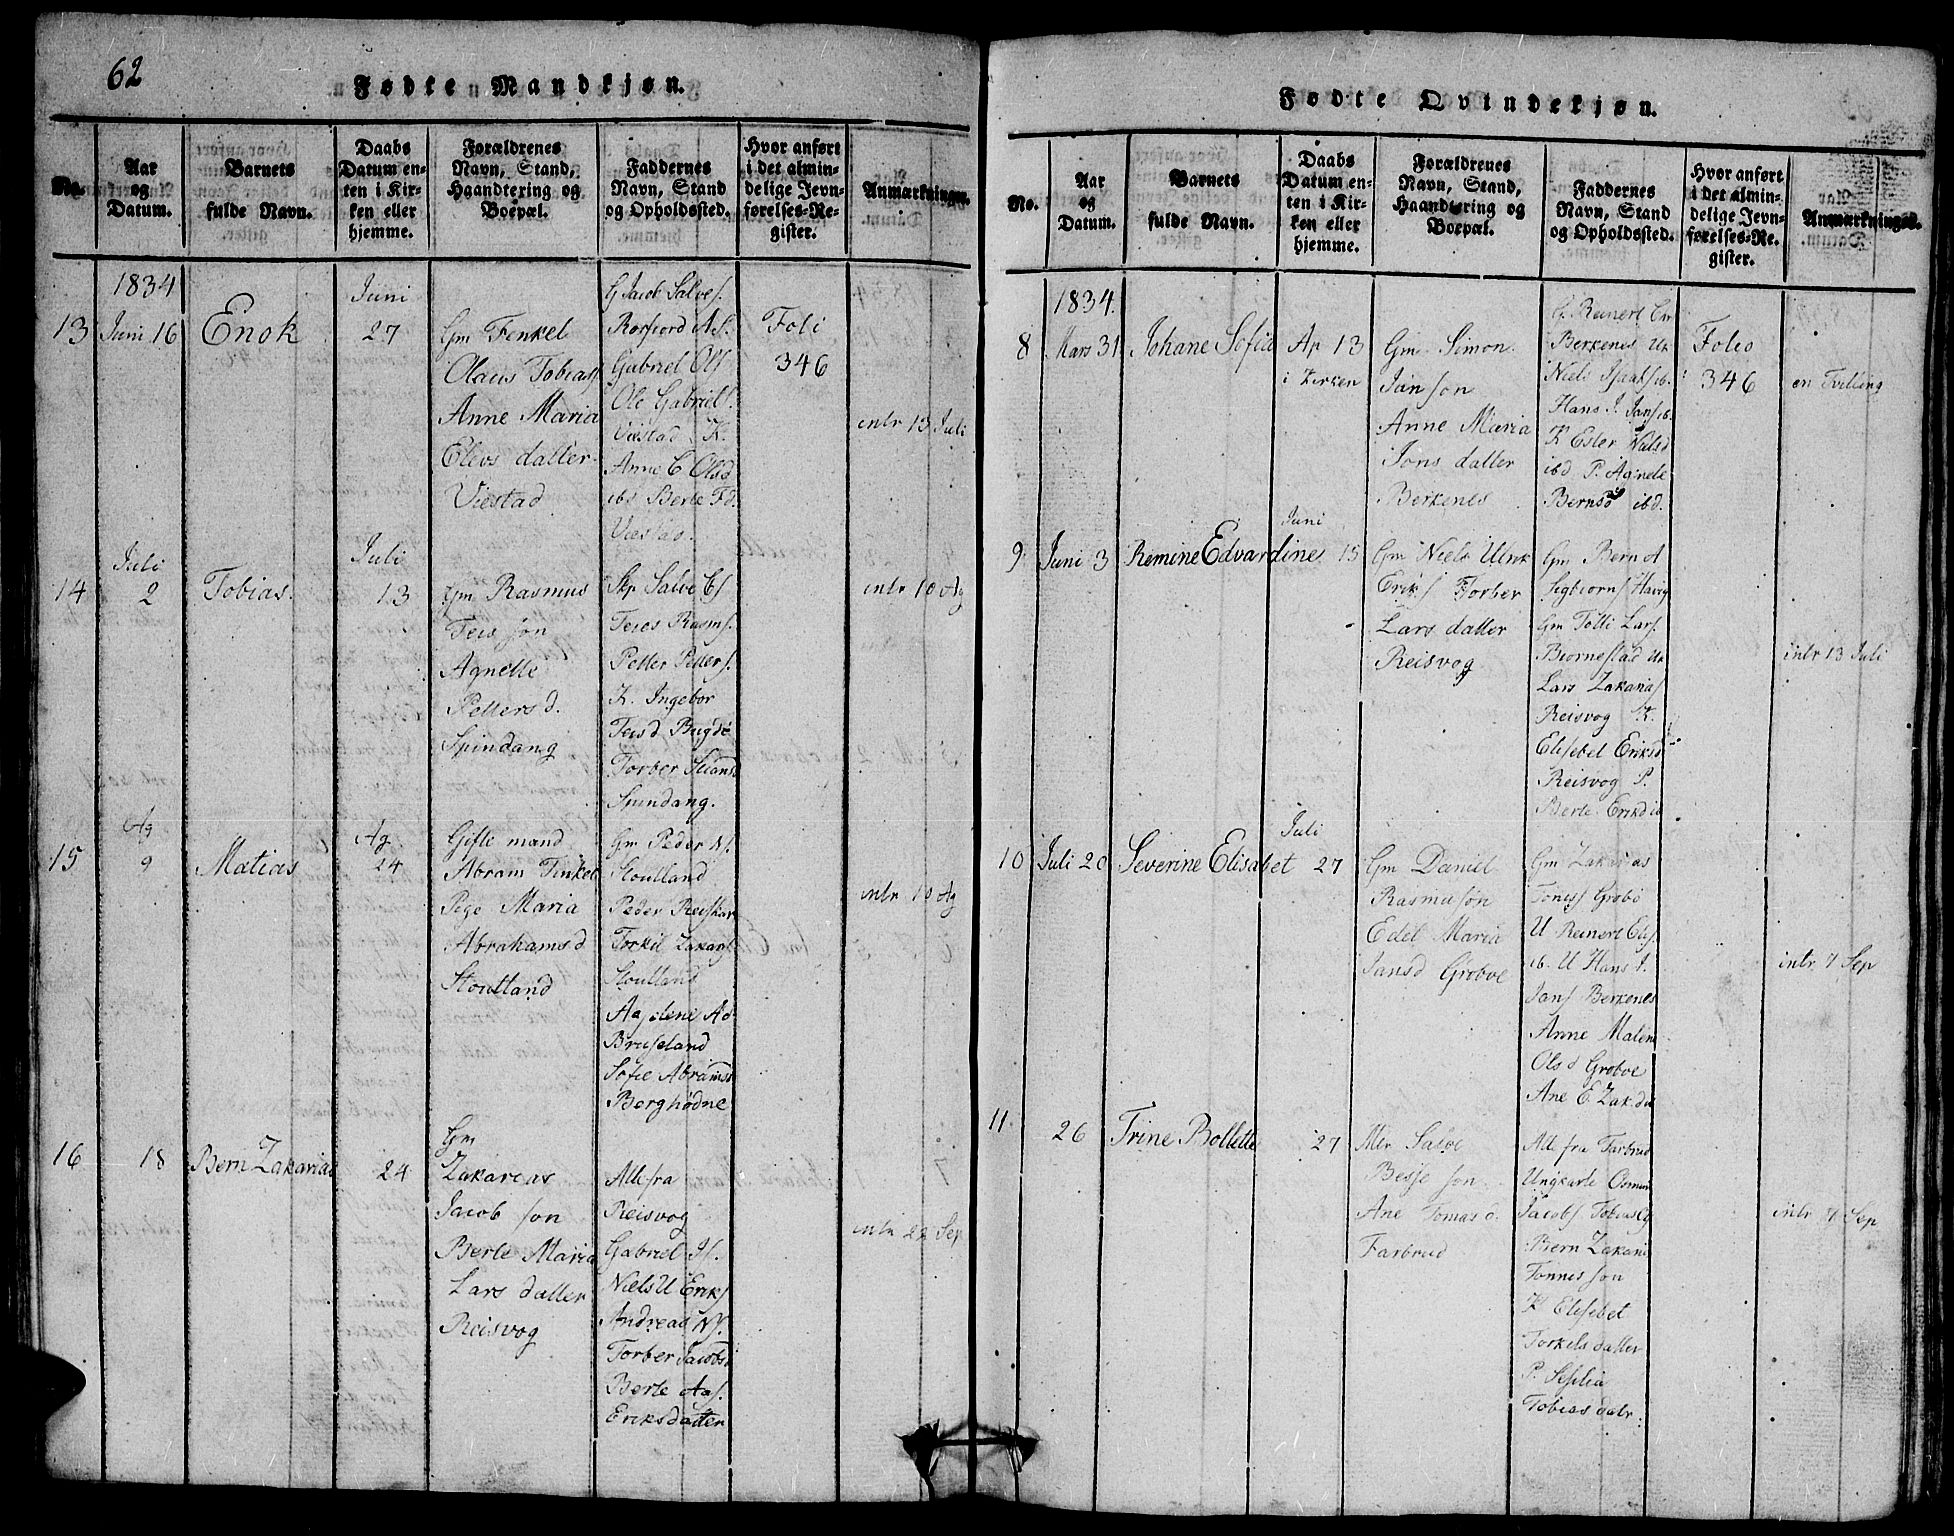 62
Fødte Mandkjøn.
No.
Aar
og
Datum.
Barnets
fulde Navn.
Daabs
Datum en-
ten i Kir-
ken eller
hjemme.
Forældrenes
Navn, Stand,
Haandtering og
Boepæl.
Faddernes
Navn, Stand
og Opholdssted.
Hvor anført
i det almin-
delige Jevn-
førelses-Re-
gister.
Anmærkninger.
1834
13
Juni 16
Enok
Juni
27
Gm Fenkel
Olaus Tobias
Anne Maria
Elevs datter
Viestad
G Jacob Salves.
Rosfiord
Gabriel Ols
Ole Gabriels.
Viestad K.
Anne C Olsd
ibs Berte Fd.
Viestad.
Foli
346
intr 13 Juli
14
Juli
2
Tobias.
Juli
13
Gm Rasmus
Teis søn
Agnette
Petters d.
Spindang
Skp Salve
Teies Rasms.
Petter Petters.
K. Ingebor
Teisd Bugdø
Torber
Spindang.
intr 10 Ag
15
Ag
9
Matias
Ag.
24
Gifte mand
Abram Finkel
Pige Maria
Abrahams d
Stoutland
Gm Peder N.
Stoutland
Peder
Torkil Zakaris
Stoutland
Bruseland
Sofie Abrams
Berghødne
intr 10 Ag
16
18
Bern Zakarias
24
Gm
Zakareas
Jacob søn
Berte Maria
Lars datter
Reisvog
Alle fra
Reisvog
Gabriel Js.
Niels U Eriks
Andreas Ns.
Torber Jacobs
Berte Aas.
Eriksdatter
intr 22 Sep
Fødte Qvindekjøn.
No.
Aar
og
Datum.
Barnets
fulde Navn.
Daabs
Datum en-
ten i Kir-
ken eller
hjemme.
Forældrenes
Navn, Stand,
Haandtering og
Boepæl.
Faddernes
Navn, Stand
og Opholdssted.
Hvor anført
i det almin-
delige Jevn-
førelses-Re-
gister.
Anmærkninger.
1834.
8
Mars 31
Johane Sofia
Ap 13
i Kirken
Gm Simon
Jan søn
Anne Maria
Jons datter
Berkenes
G. Reinert
Berkenes Uk
Niels Isaaks ib.
Hans J. Jans ib.
K Ester Nielsd
ibd P. Agnete
ibd.
Folio
346
en Tvilling
9
Juni 3
Remine Edvardines
Juni
15
Gm Niels Ulrik
Eriks Torber
Lars datter
Reisvog
Gm Bern A
Segbiorns Havig
Gm Tolli Lars.
Biornestad Uk
Lars Zakarias
Reisvog K.
Elisebet Eriksd
Reisvog P.
Berte Eriksd ib
intr 13 Juli
10
Juli 20
Severine Elisabet
Juli
27
Gm Daniel
Rasmusøn
Edel Maria
Jansd Grobve
Gm Zakarias
Toness Grobo
U Reinert Elis.
ib. U Hans J.
Jans Berkenes
Anne Malene
Olsd Grobve
Ane E. Zak. dr
intr 7 Sep
11
26
Trine Bollette
27
Mlr Salve
Besse søn
Ane Tomas d.
Farbrud
Alle fra Farbrud
Ungkarle Osmun
Jacobs Tobias
Bern Zakari
Tonnes søn
K Elisebet
Torkels datter
P. Sephia
Tobias datr:
intr 7 Sep